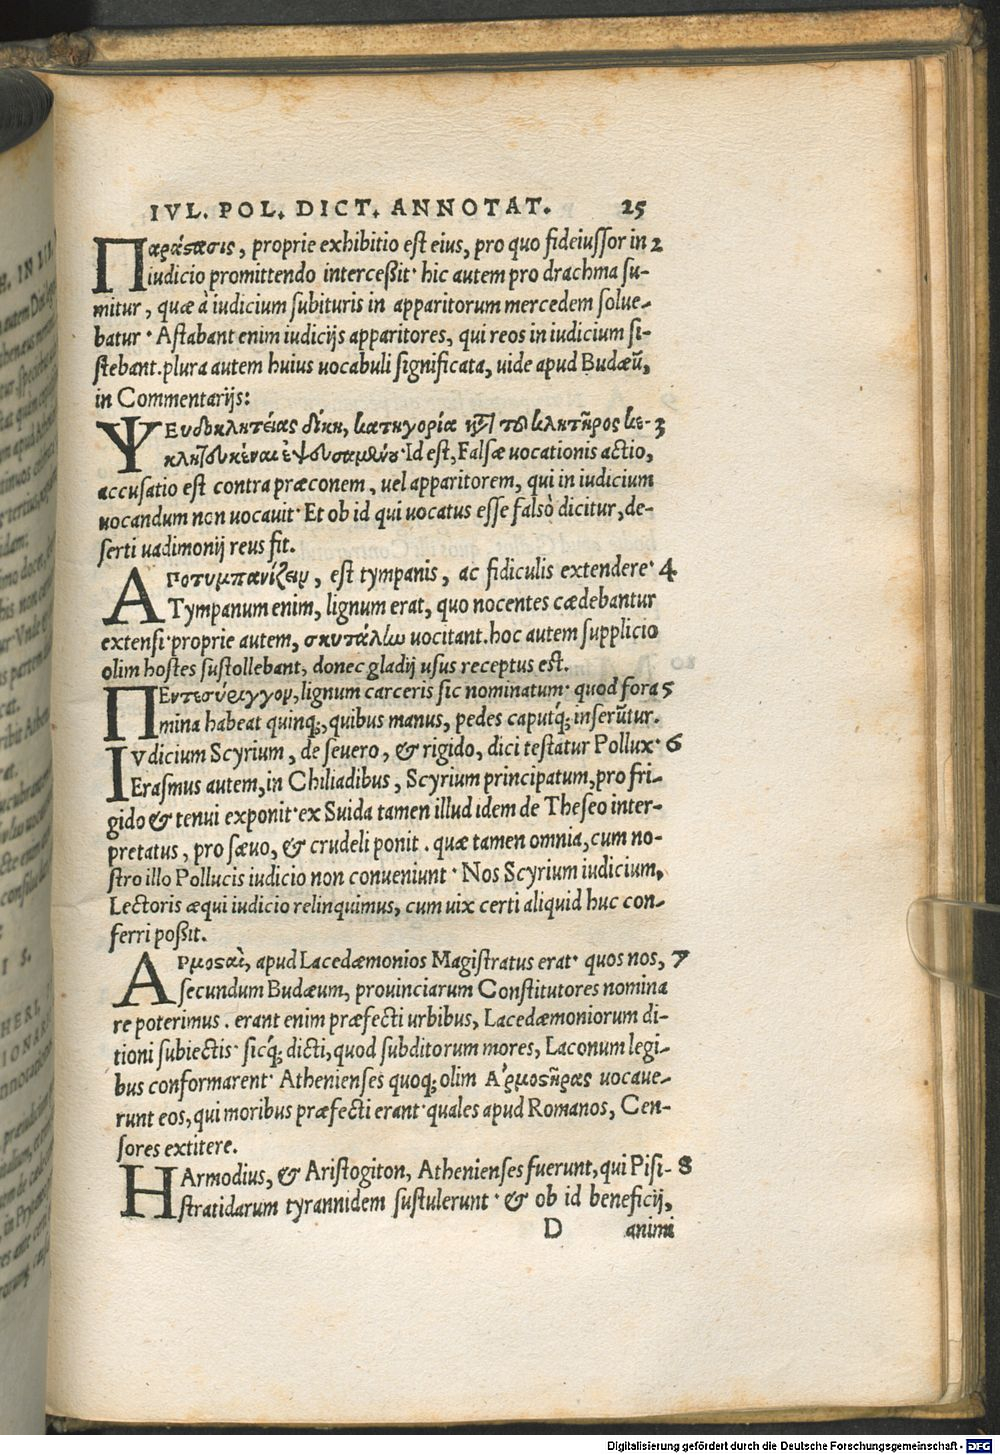 IVL. POL. DICT. ANNOTAT. 25
Παράστασις, proprie exhibitio est eius, pro quo fideiussor in 2
iudicio promittendo interceßit· hic autem pro drachma su-
mitur, quæ à iudicium subituris in apparitorum mercedem solue-
batur · Astabant enim iudicijs apparitores, qui reos in iudicium si-
stebant. plura autem huius uocabuli significata, uide apud Budæũ,
in Commentarijs:
ΨΕυδοκλητείας δίκη, κατηγορία τοῦ κλητῆρος κε- 3
Id est, Falsæ uocationis actio,
accusatio est contra præconem, uel apparitorem, qui in iudicium
uocandum non uocauit· Et ob id qui uocatus esse falsò dicitur, de-
serti uadimonij reus fit.
ΑΠοτυμπανίζειν, est tympanis, ac fidiculis extendere· 4
Tympanum enim, lignum erat, quo nocentes cædebantur
extensi· proprie autem, σκυτάλίω uocitant. hoc autem supplicio
olim hostes sustollebant, donec gladij usus receptus est.
ΠΕντεσύριγγον, lignum carceris sic nominatum· quod fora 5
mina habeat quinq;, quibus manus, pedes caputq́; inserũtur.
IVdicium Scyrium, de seuero, & rigido, dici testatur Pollux· 6
Erasmus autem, in Chiliadibus, Scyrium principatum, pro fri-
gido & tenui exponit· ex Suida tamen illud idem de Theseo inter-
pretatus, pro sæuo, & crudeli ponit. quæ tamen omnia, cum no-
stro illo Pollucis iudicio non conueniunt · Nos Scyrium iudicium,
Lectoris æqui iudicio relinquimus, cum uix certi aliquid huc con-
ferri poßit.
ΑΡμοσαὶ, apud Lacedæmonios Magistratus erat· quos nos, 7
secundum Budæum, prouinciarum Constitutores nomina
re poterimus. erant enim præfecti urbibus, Lacedæmoniorum di-
tioni subiectis· sicq́; dicti, quod subditorum mores, Laconum legi-
bus conformarent· Athenienses quoq; olim Αʹρμοστῆρας uocaue-
runt eos, qui moribus præfecti erant· quales apud Romanos, Cen-
sores extitere.
HArmodius, & Aristogiton, Athenienses fuerunt, qui Pisi- 8
stratidarum tyrannidem sustulerunt· & ob id beneficij,
D animi
Digitalisierung gefördert durch die Deutsche Forschungsgemeinschaft - DFG